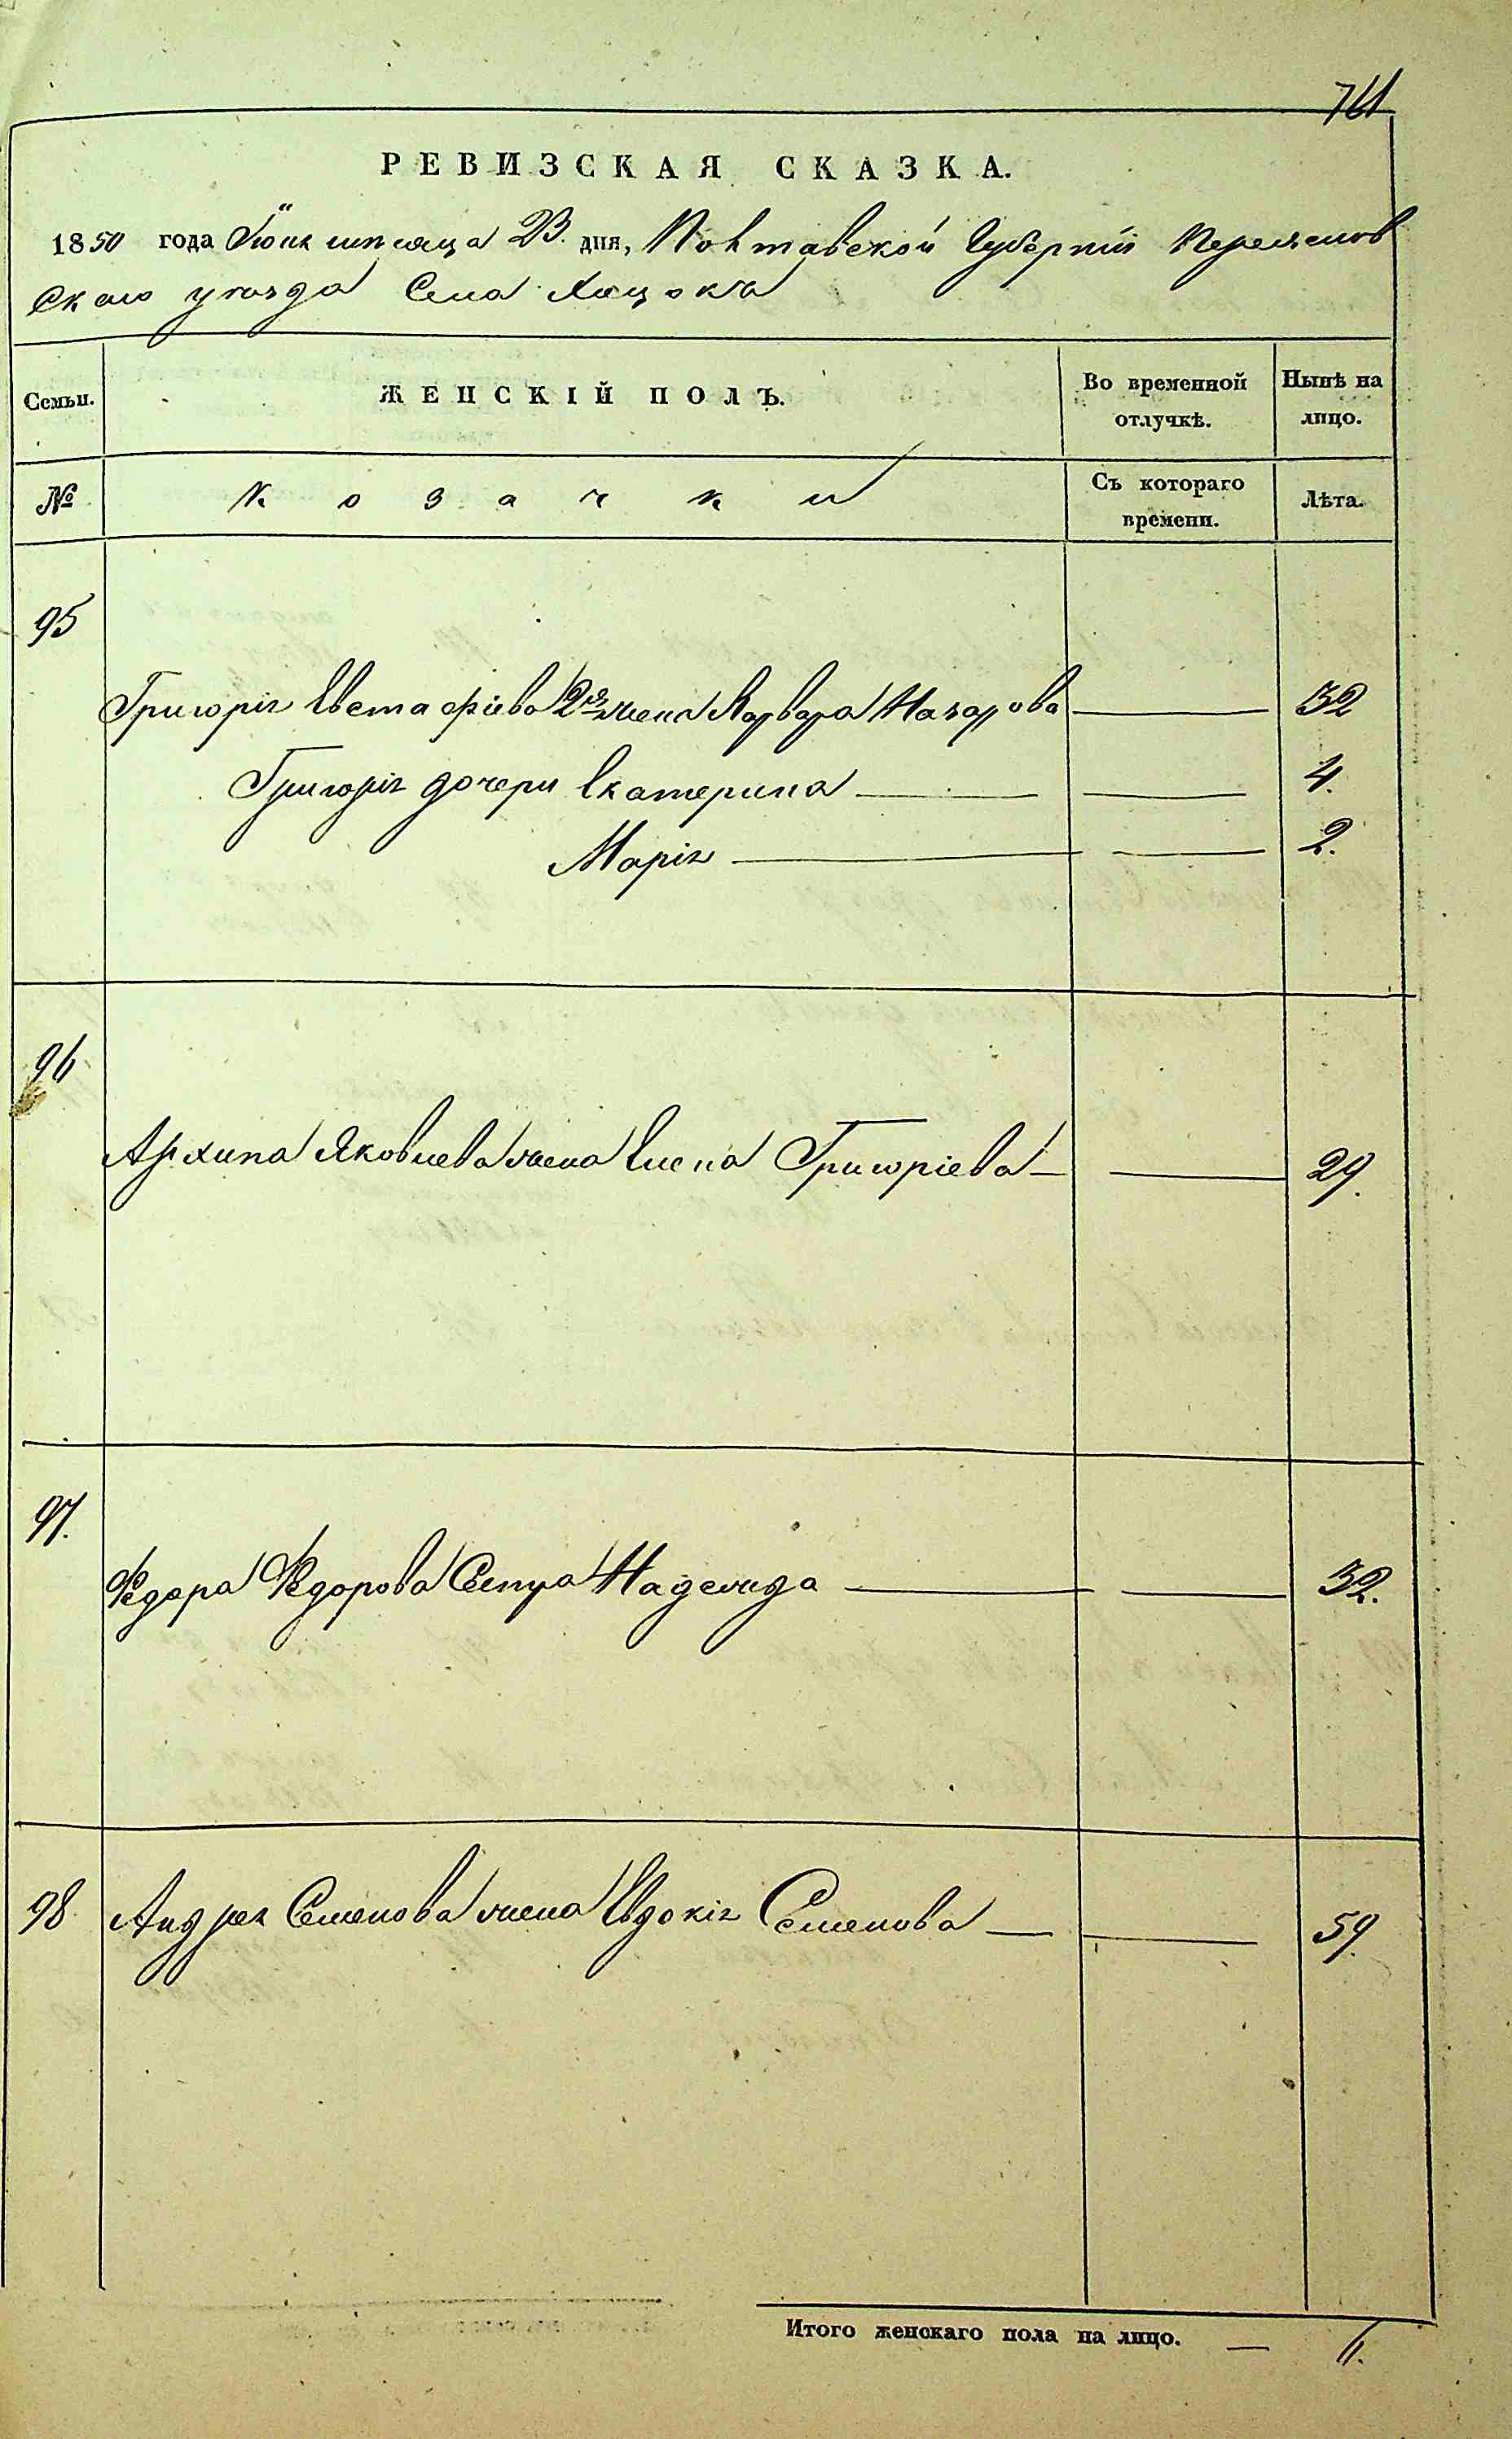 761
РЕВИЗСКАЯ СКАЗКА.
1850 года Іюня мѣсяца 23. дня, Полтавской Губерніи Переяслов
скаго уѣзда Села Хоцокъ
Семьи.
ЖЕНСКІЙ ПОЛЪ.
Во временной отлучкѣ.
Нынѣ на лицо.
№
Козачки
Съ котораго времени.
Лѣта.
95
Григорія Евстафіева 2я жена Варвара Назарова — 32
Григорія дочери Екатерина — 4.
Марія — 2.
96
Архипа Яковлева жена Елена Григоріева — 29.
97.
Федора Федорова Сестра Надежда — 32.
98 Андрея Семенова жена Евдокія Семенова — 59.
Итого женскаго пола на лицо. — 6.